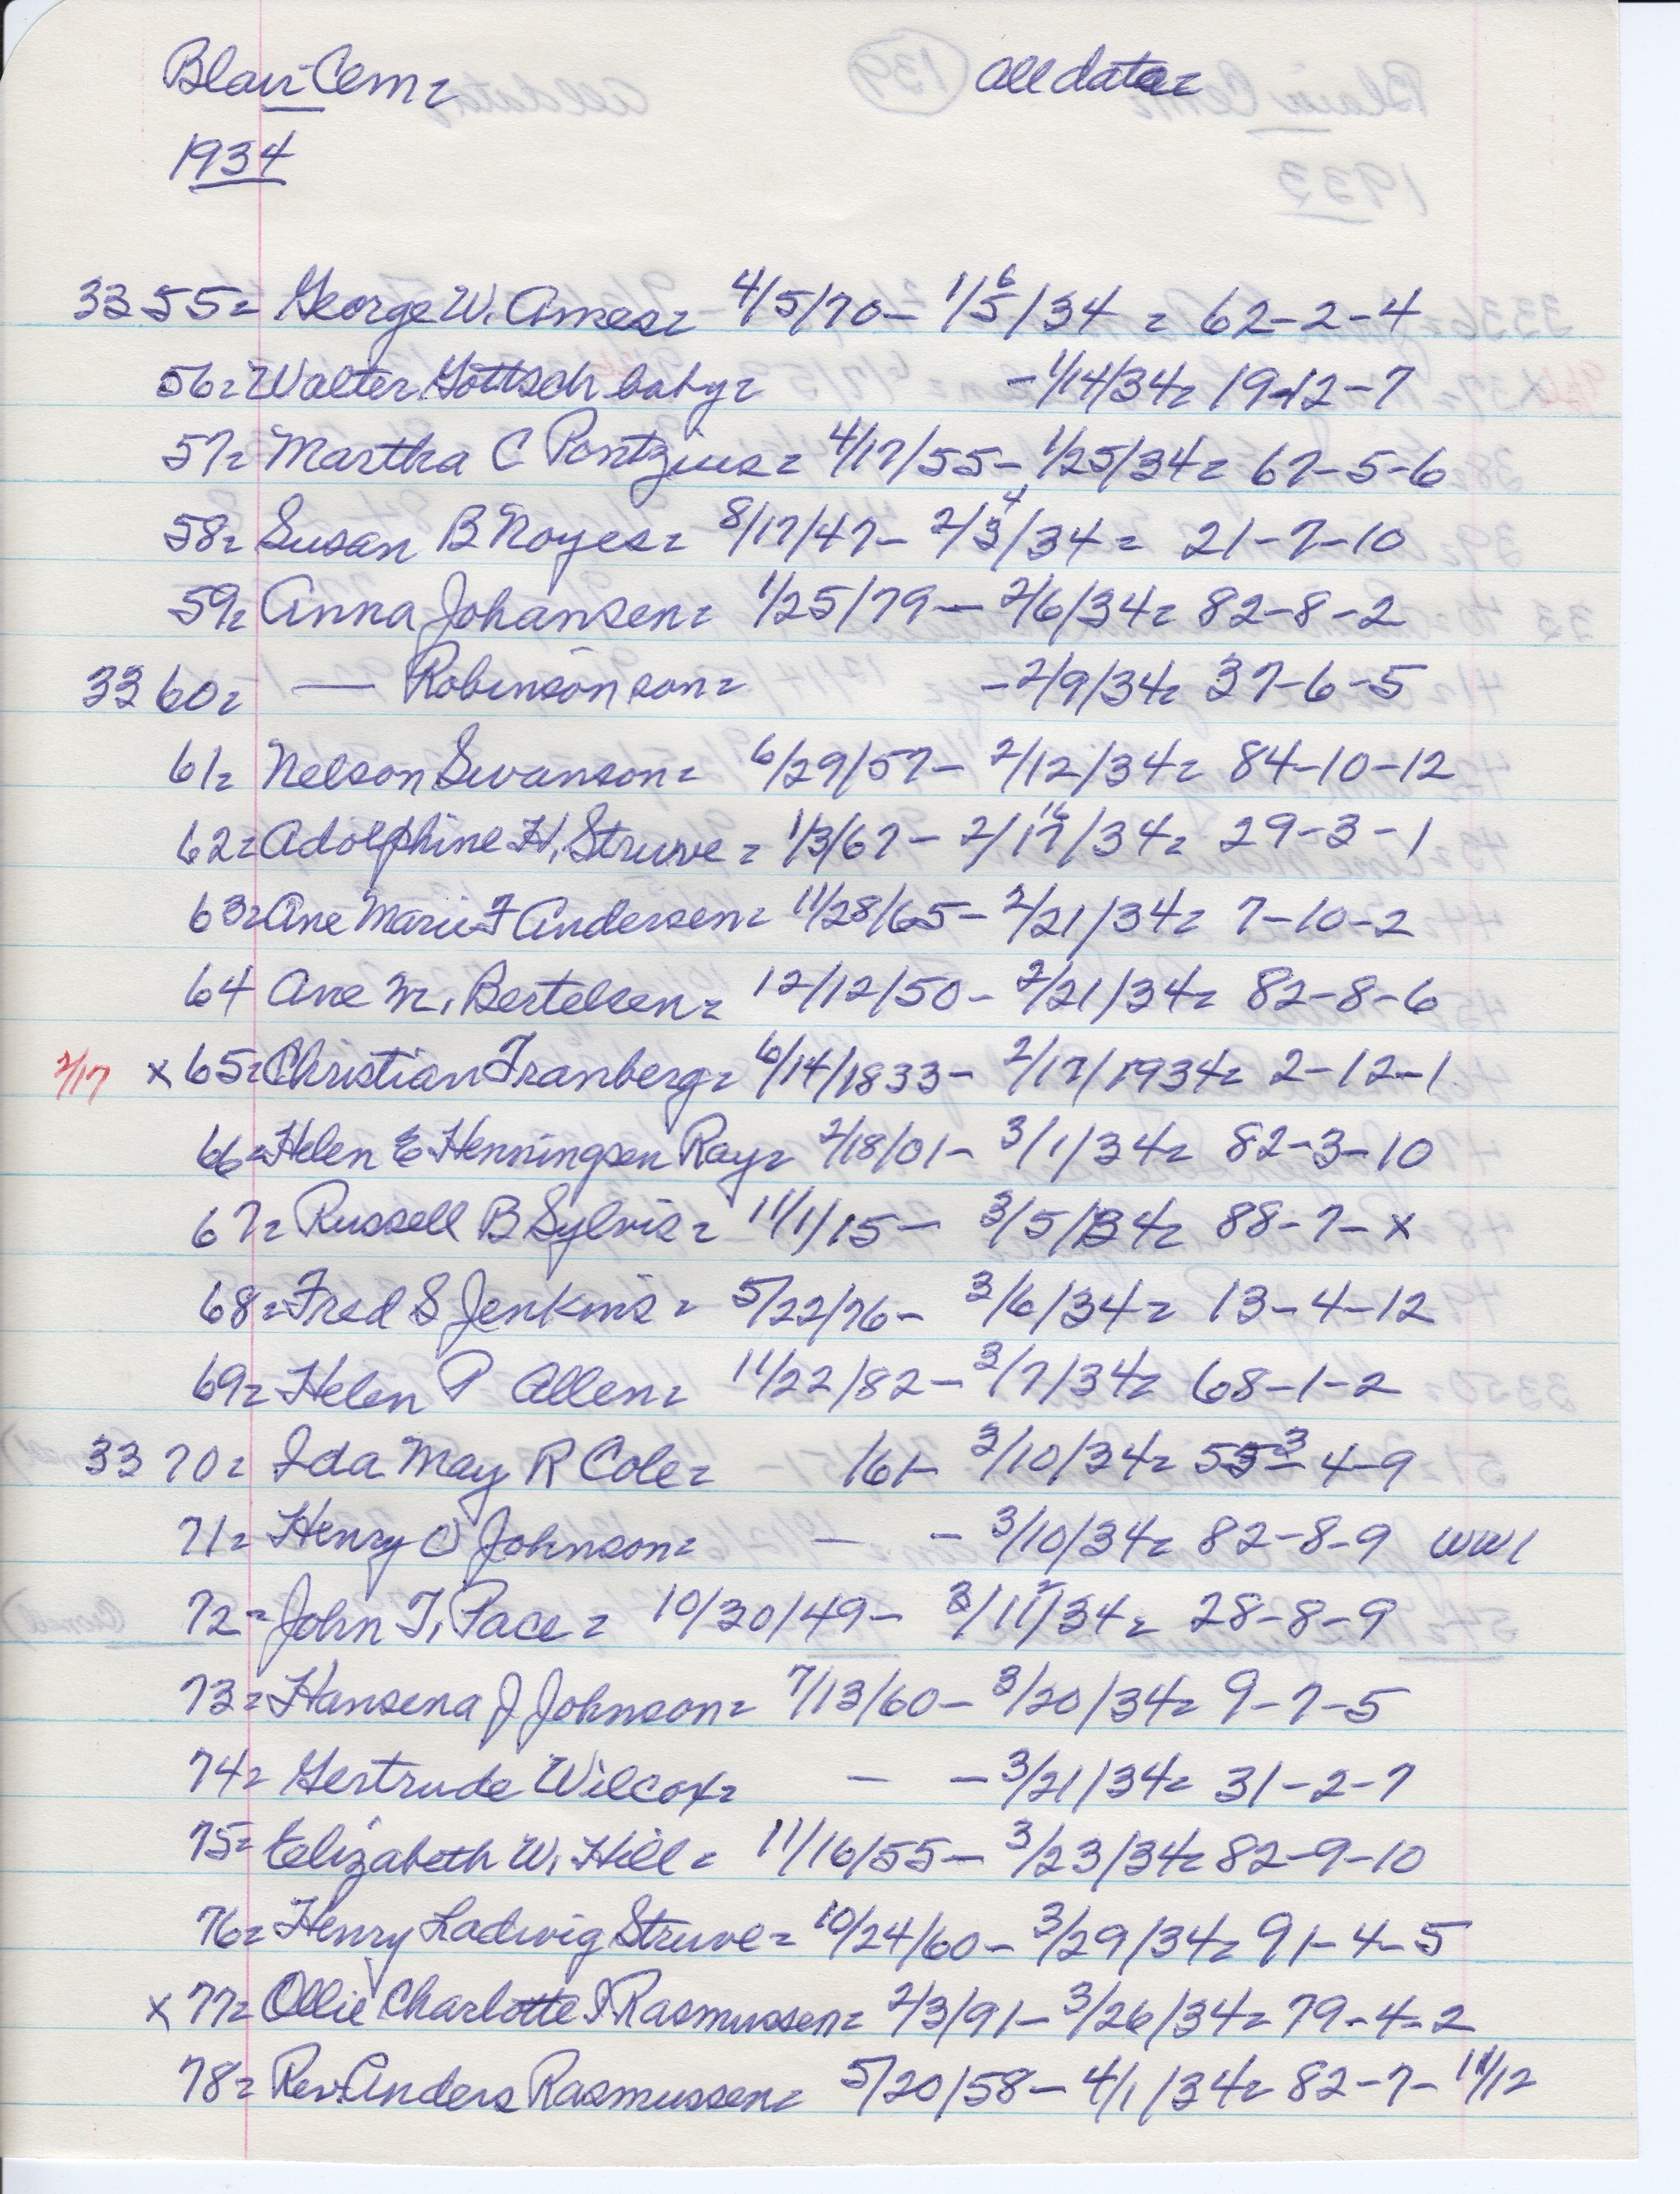 Blair Cem= All data=
1934
3355= George W. Ames= 4/5/70- 1/5/34 = 62-2-4
6
56= Walter Gottsch baby= -1/14/34= 19-12-7
57= Martha C Pontzius= 4/17/55- 1/25/34= 67-5-6
58= Susan B Noyes= 8/17/47- 2/3/34= 21-7-10
4
59= Anna Johansen= 1/25/79- 2/6/34= 82-8-2
3360= — Robinson son= -2/9/34= 37-6-5
61= Nelson Swanson= 6/29/57- 2/12/34= 84-10-12
62= Adolphine H. Struve= 1/3/67- 2/17/34= 29-3-1
16
63= Ane Marie F Andersen= 11/28/65- 2/21/34= 7-10-2
64 Ane M. Bertelsen= 12/12/50- 2/21/34= 82-8-6
2/17 x 65= Christian Tranberg= 6/14/1833- 2/17/1934= 2-12-1
66= Helen E Henningsen Ray= 2/18/01- 3/1/34= 82-3-10
67= Russell B Sylvis= 11/1/15- 3/5/34= 88-7-x
68= Fred S Jenkins= 5/22/76- 3/6/34= 13-4-12
69= Helen P Allen= 11/22/82- 3/7/34= 68-1-2
3370= Ida May R Cole= /61- 3/10/34= 53-4-9
3
71= Henry O Johnson= — - 3/10/34= 82-8-9 WW1
72= John T. Pace= 10/30/49- 3/11/34= 28-8-9
2
73= Hansena J Johnson= 7/13/60- 3/20/34= 9-7-5
74= Gertrude Wilcox= — -3/21/34= 31-2-7
75= Elizabeth W. Hill= 11/16/55- 3/23/34= 82-9-10
76= Henry Ladwig Struve= 10/24/60- 3/29/34= 91-4-5
x 77= Ollie Charlotte I Rasmussen= 2/3/91- 3/26/34= 79-4-2
78= Rev. Anders Rasmussen= 5/20/58- 4/1/34= 82-7-11/12